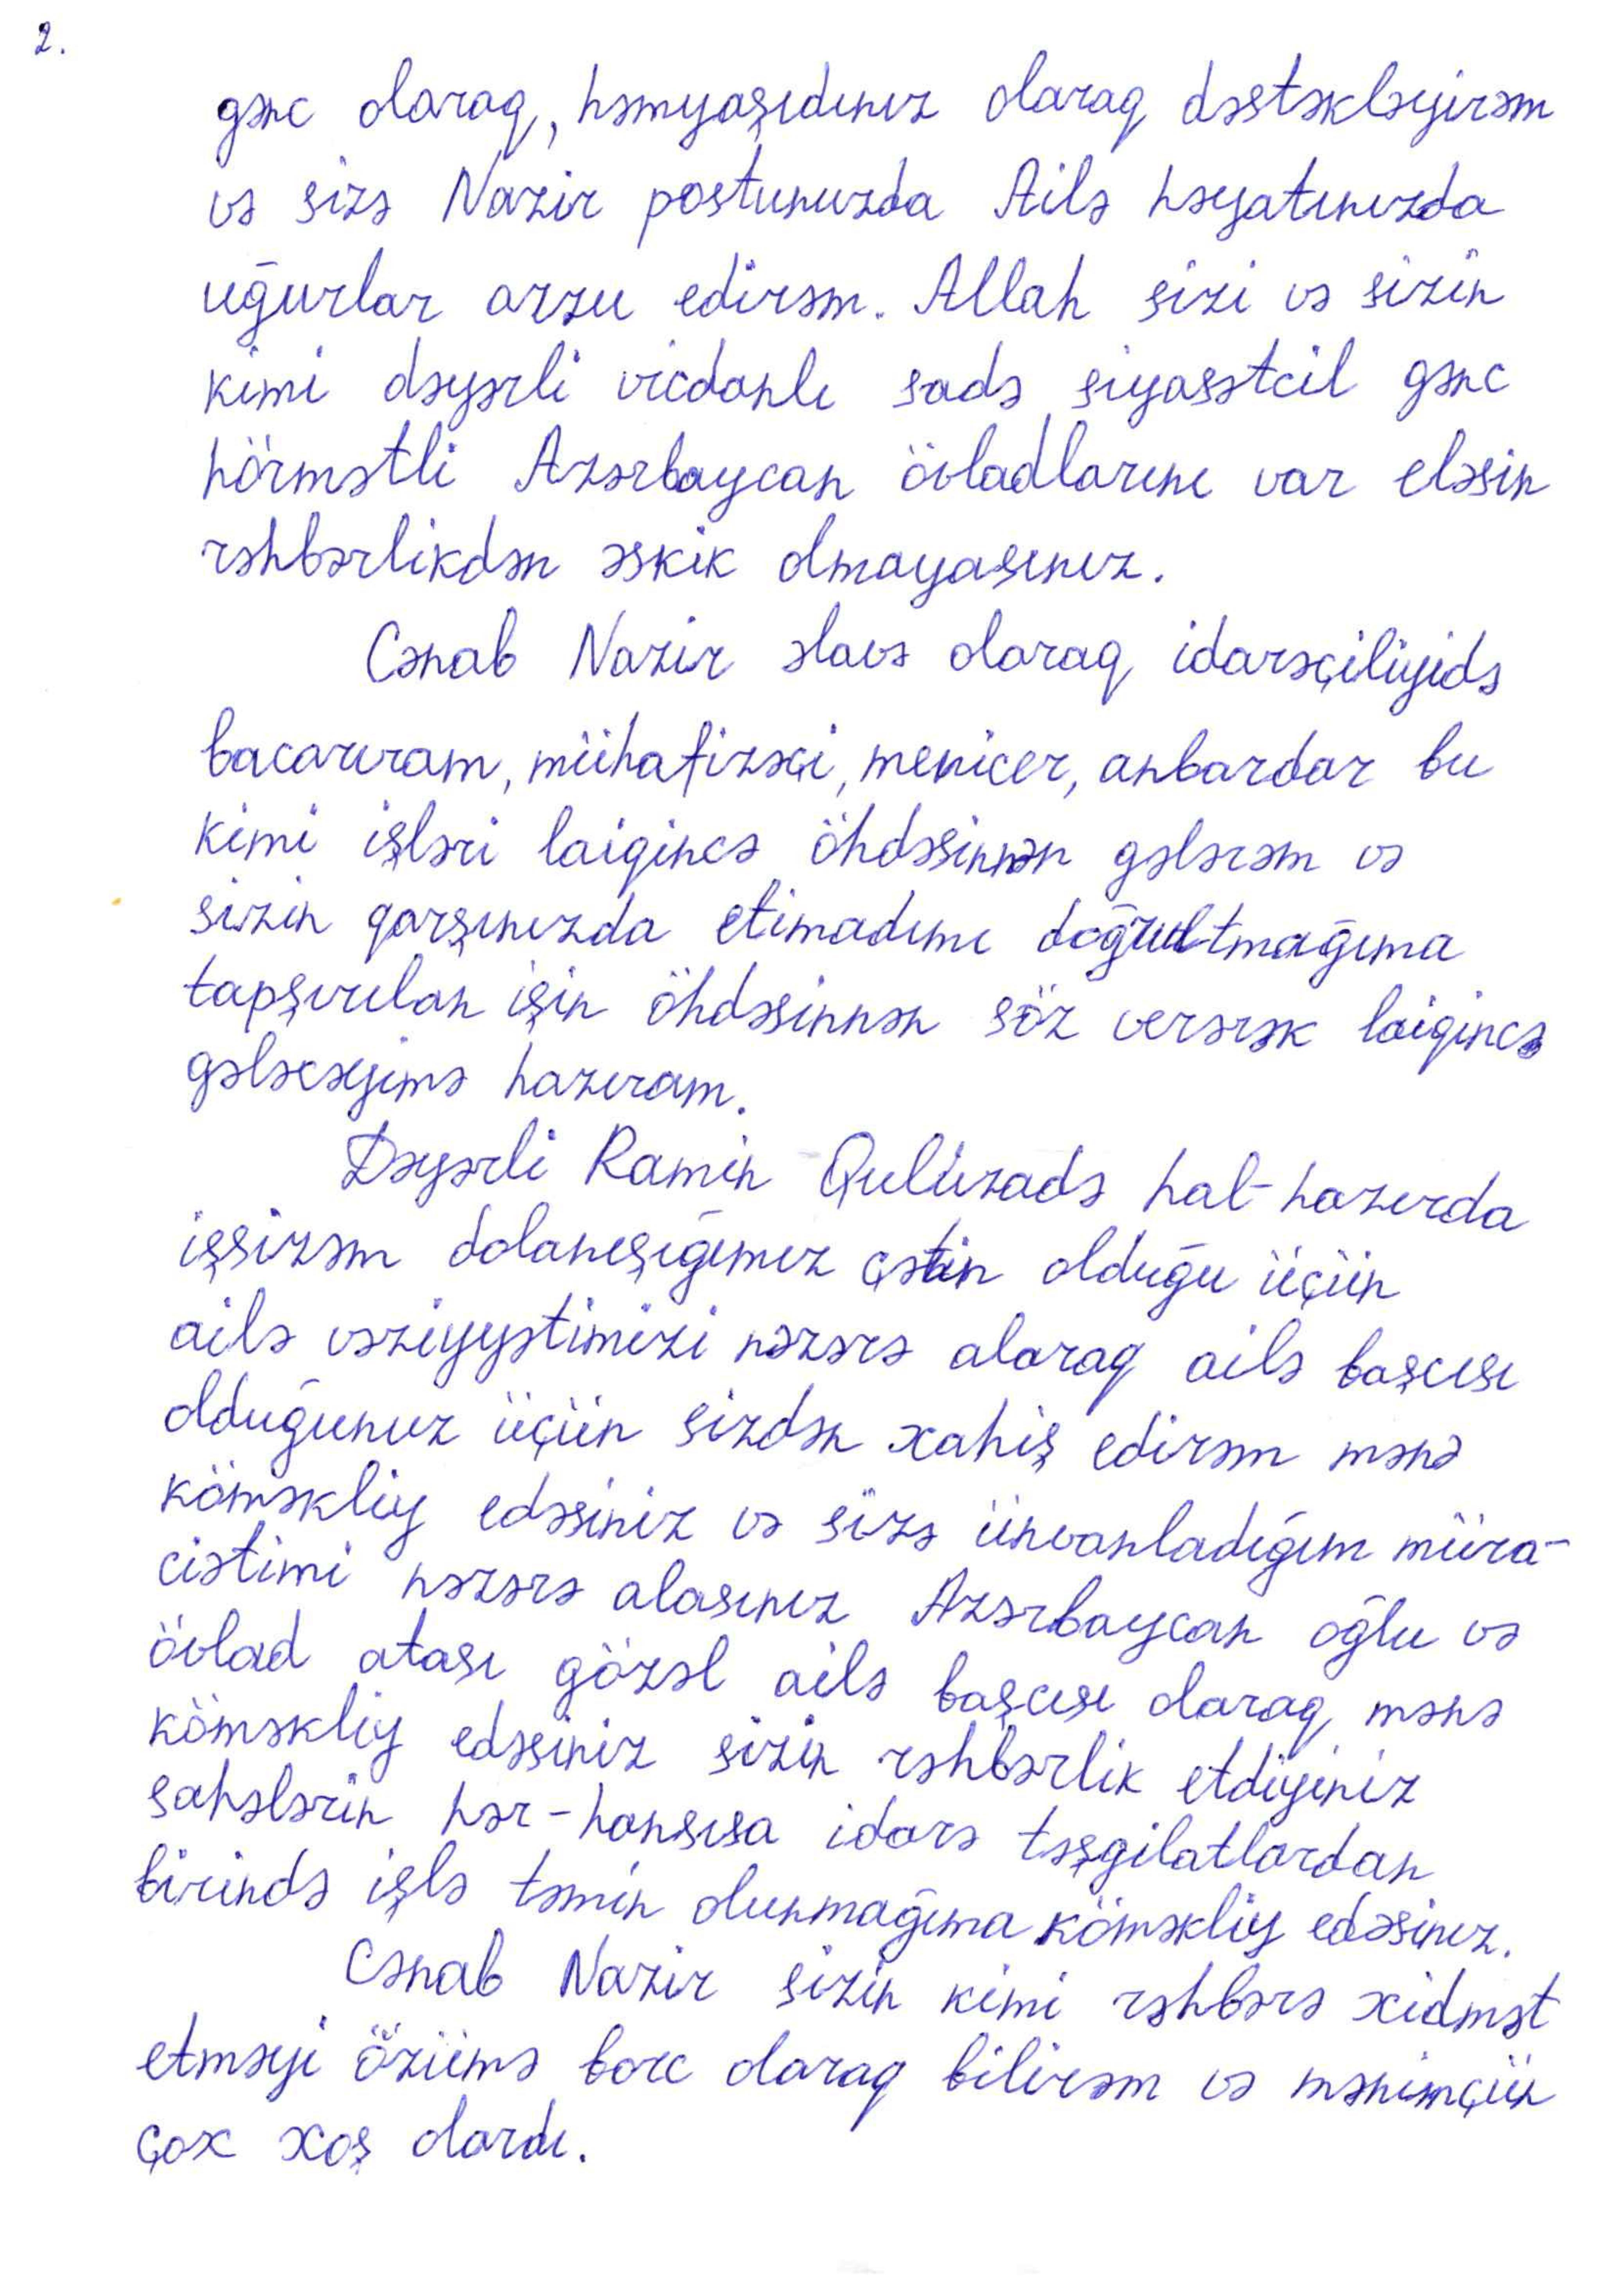 2.
gənc olaraq, həmyaşıdınız olaraq dəstəkləyirəm
və sizə Nazir postunuzda Ailə həyatınızda
uğurlar arzu edirəm. Allah sizi və sizin
kimi dəyərli vicdanlı sadə siyasətcil gənc
hörmətli Azərbaycan övladlarını var eləsin
rəhbərlikdən əskik olmayasınız.
Cənab Nazir əlavə olaraq idarəçiliyidə
bacarıram, mühafizəçi, menicer, anbardar bu
kimi işləri laiqincə öhdəsinnən gələrəm və
sizin qarşınızda etimadımı doğrultmağıma
tapşırılan işin öhdəsinnən söz verərək laiqincə
gələcəyimə hazıram.
Dəyərli Ramin Quluzadə hal-hazırda
işsizəm dolanışığımız çətin olduğu üçün
ailə vəziyyətimizi nəzərə alaraq ailə başcısı
olduğunuz üçün sizdən xahiş edirəm mənə
köməkliy edəsiniz və sizə ünvanladığım müra-
ciətimi nəzərə alasınız Azərbaycan oğlu və
övlad atası gözəl ailə başcısı olaraq mənə
köməkliy edəsiniz sizin rəhbərlik etdiyiniz
sahələrin hər-hansısa idarə təşgilatlardan
birində işlə təmin olunmağıma köməkliy edəsinız.
Cənab Nazir sizin kimi rəhbərə xidmət
etməyi özümə borc olaraq bilirəm və mənimçün
çox xoş olardı.